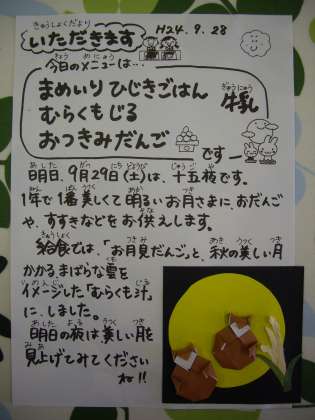 きゅうしょくだより
いただきます
H24.9.28
今日のメニューは…
まめいり ひじきごはん
牛乳
むらくもじる
おつきみだんご
ですー
明日、9月29日(土)は、十五夜です。
1年で1番美しくて明るいお月さまに、おだんご
や、すすきなどをお供えします。
給食では、「お月見だんご」と、秋の美しい月
にかかるまばらな雲を
イメージした「むらくも汁」
に、しました。
明日の夜は美しい月を
見上げてみてください
ね!!